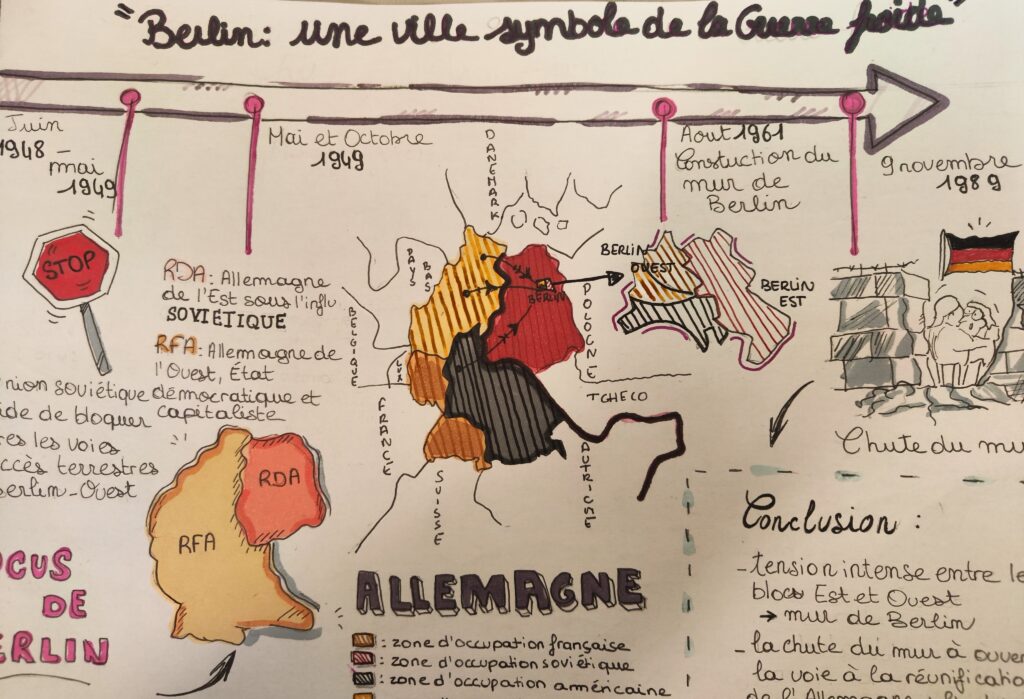 "Berlin: une ville symbole de la Guerre froide"
Juin
1948 -
mai
1949
Mai et Octobre
1949
Aout 1961
Constuction du
mur de
Berlin
9 novembre
1989
STOP
RDA: Allemagne
de l'Est sous l'influ
SOVIÉTIQUE
RFA: Allemagne de
l'Ouest, État
démocratique et
capitaliste
nion soviétique
ide de bloquer
res les voies
ccès terrestres
Berlin-Ouest
RFA
RDA
OCUS
DE
ERLIN
DANEMARK
PAYS
BAS
BELGIQUE
LUX
FRANCE
SUISSE
AUTRICHE
TCHECO
POLOGNE
BERLIN
BERLIN
OUEST
BERLIN
EST
ALLEMAGNE
: zone d'occupation française
: zone d'occupation soviétique
: zone d'occupation américaine
Chute du mu
Conclusion :
- tension intense entre le
blocs Est et Ouest
→ mur de Berlin
- la chute du mur à ouve
la voie à la réunific
de l'Allemagne